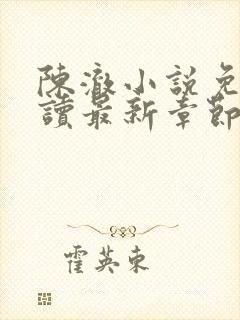 陳澈小說免
讀最新章節
霍英東